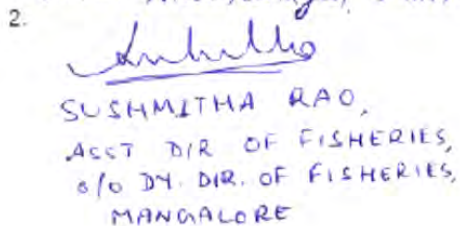 2.
SUSHMITHA RAO,
ASST DIR OF FISHERIES,
o/o DY. DIR. OF FISHERIES,
MANGALORE